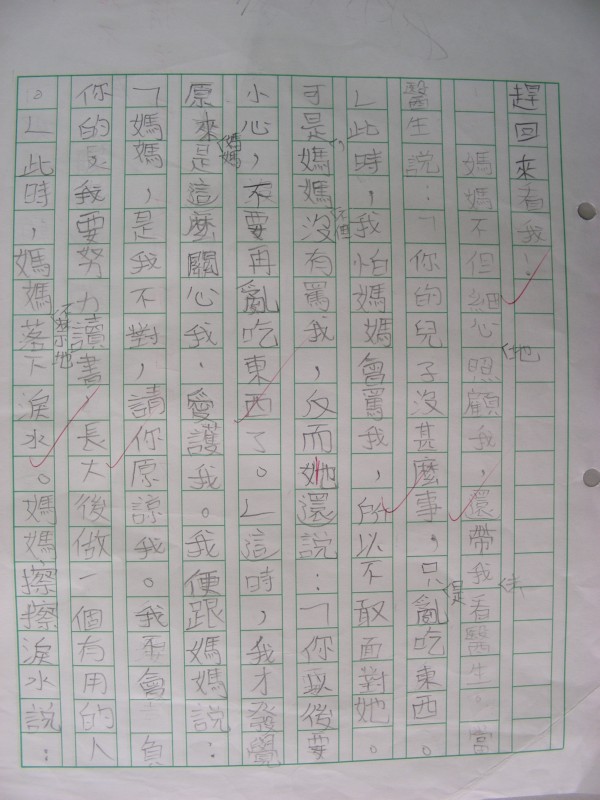 趕回來看我!
媽媽不但細心地照顧我,還帶我看醫生。當
醫生說:「你的兒子沒甚麼事,只是亂吃東西。
」此時,我怕媽媽會罵我,所以不敢面對她。
可是,媽媽不但沒有罵我,反而她還說:「你以後要
小心,不要再亂吃東西了。」這時,我才發覺
原來媽媽是這麼關心我、愛護我。我便跟媽媽說:
「媽媽,是我不對,請你原諒我。我會負
你的我要努力讀書,長大後做一個有用的人
。」此時,媽媽不禁地落下淚水。媽媽擦擦淚水說: